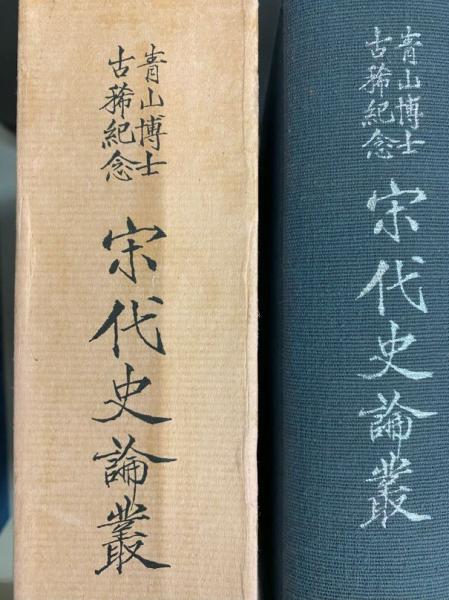 青山博士
古稀紀念
宋代史論叢
青山博士
古稀紀念
宋代史論叢